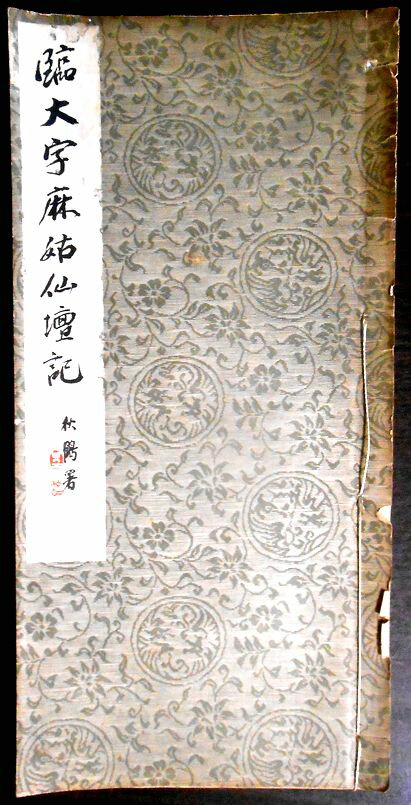 臨大字麻姑仙壇記
秋鷗署